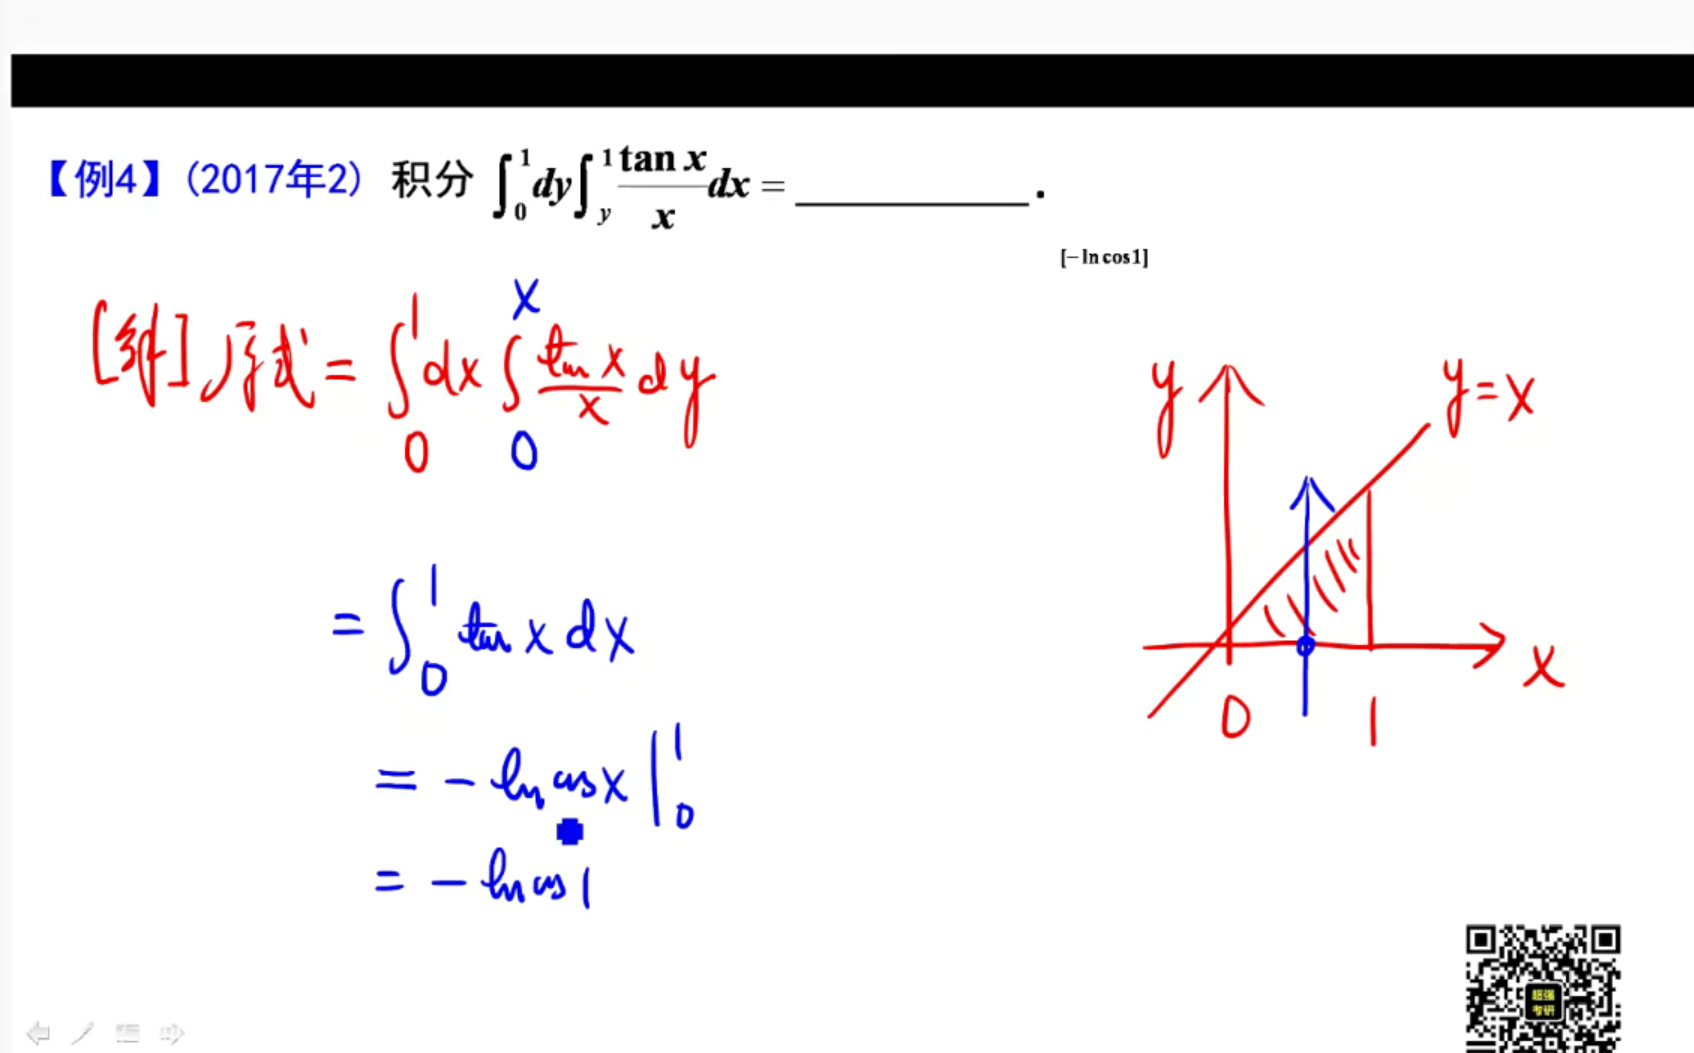 【例4】(2017年2) 积分 ∫₀¹ dy ∫_y¹ (tan x / x) dx = ________ .
[−ln cos1]
[解] 原式 = ∫₀¹ dx ∫₀ˣ (tan x / x) dy
= ∫₀¹ tan x dx
= − ln cos x |₀¹
= − ln cos 1
y
y=x
x
0
1
超强
考研